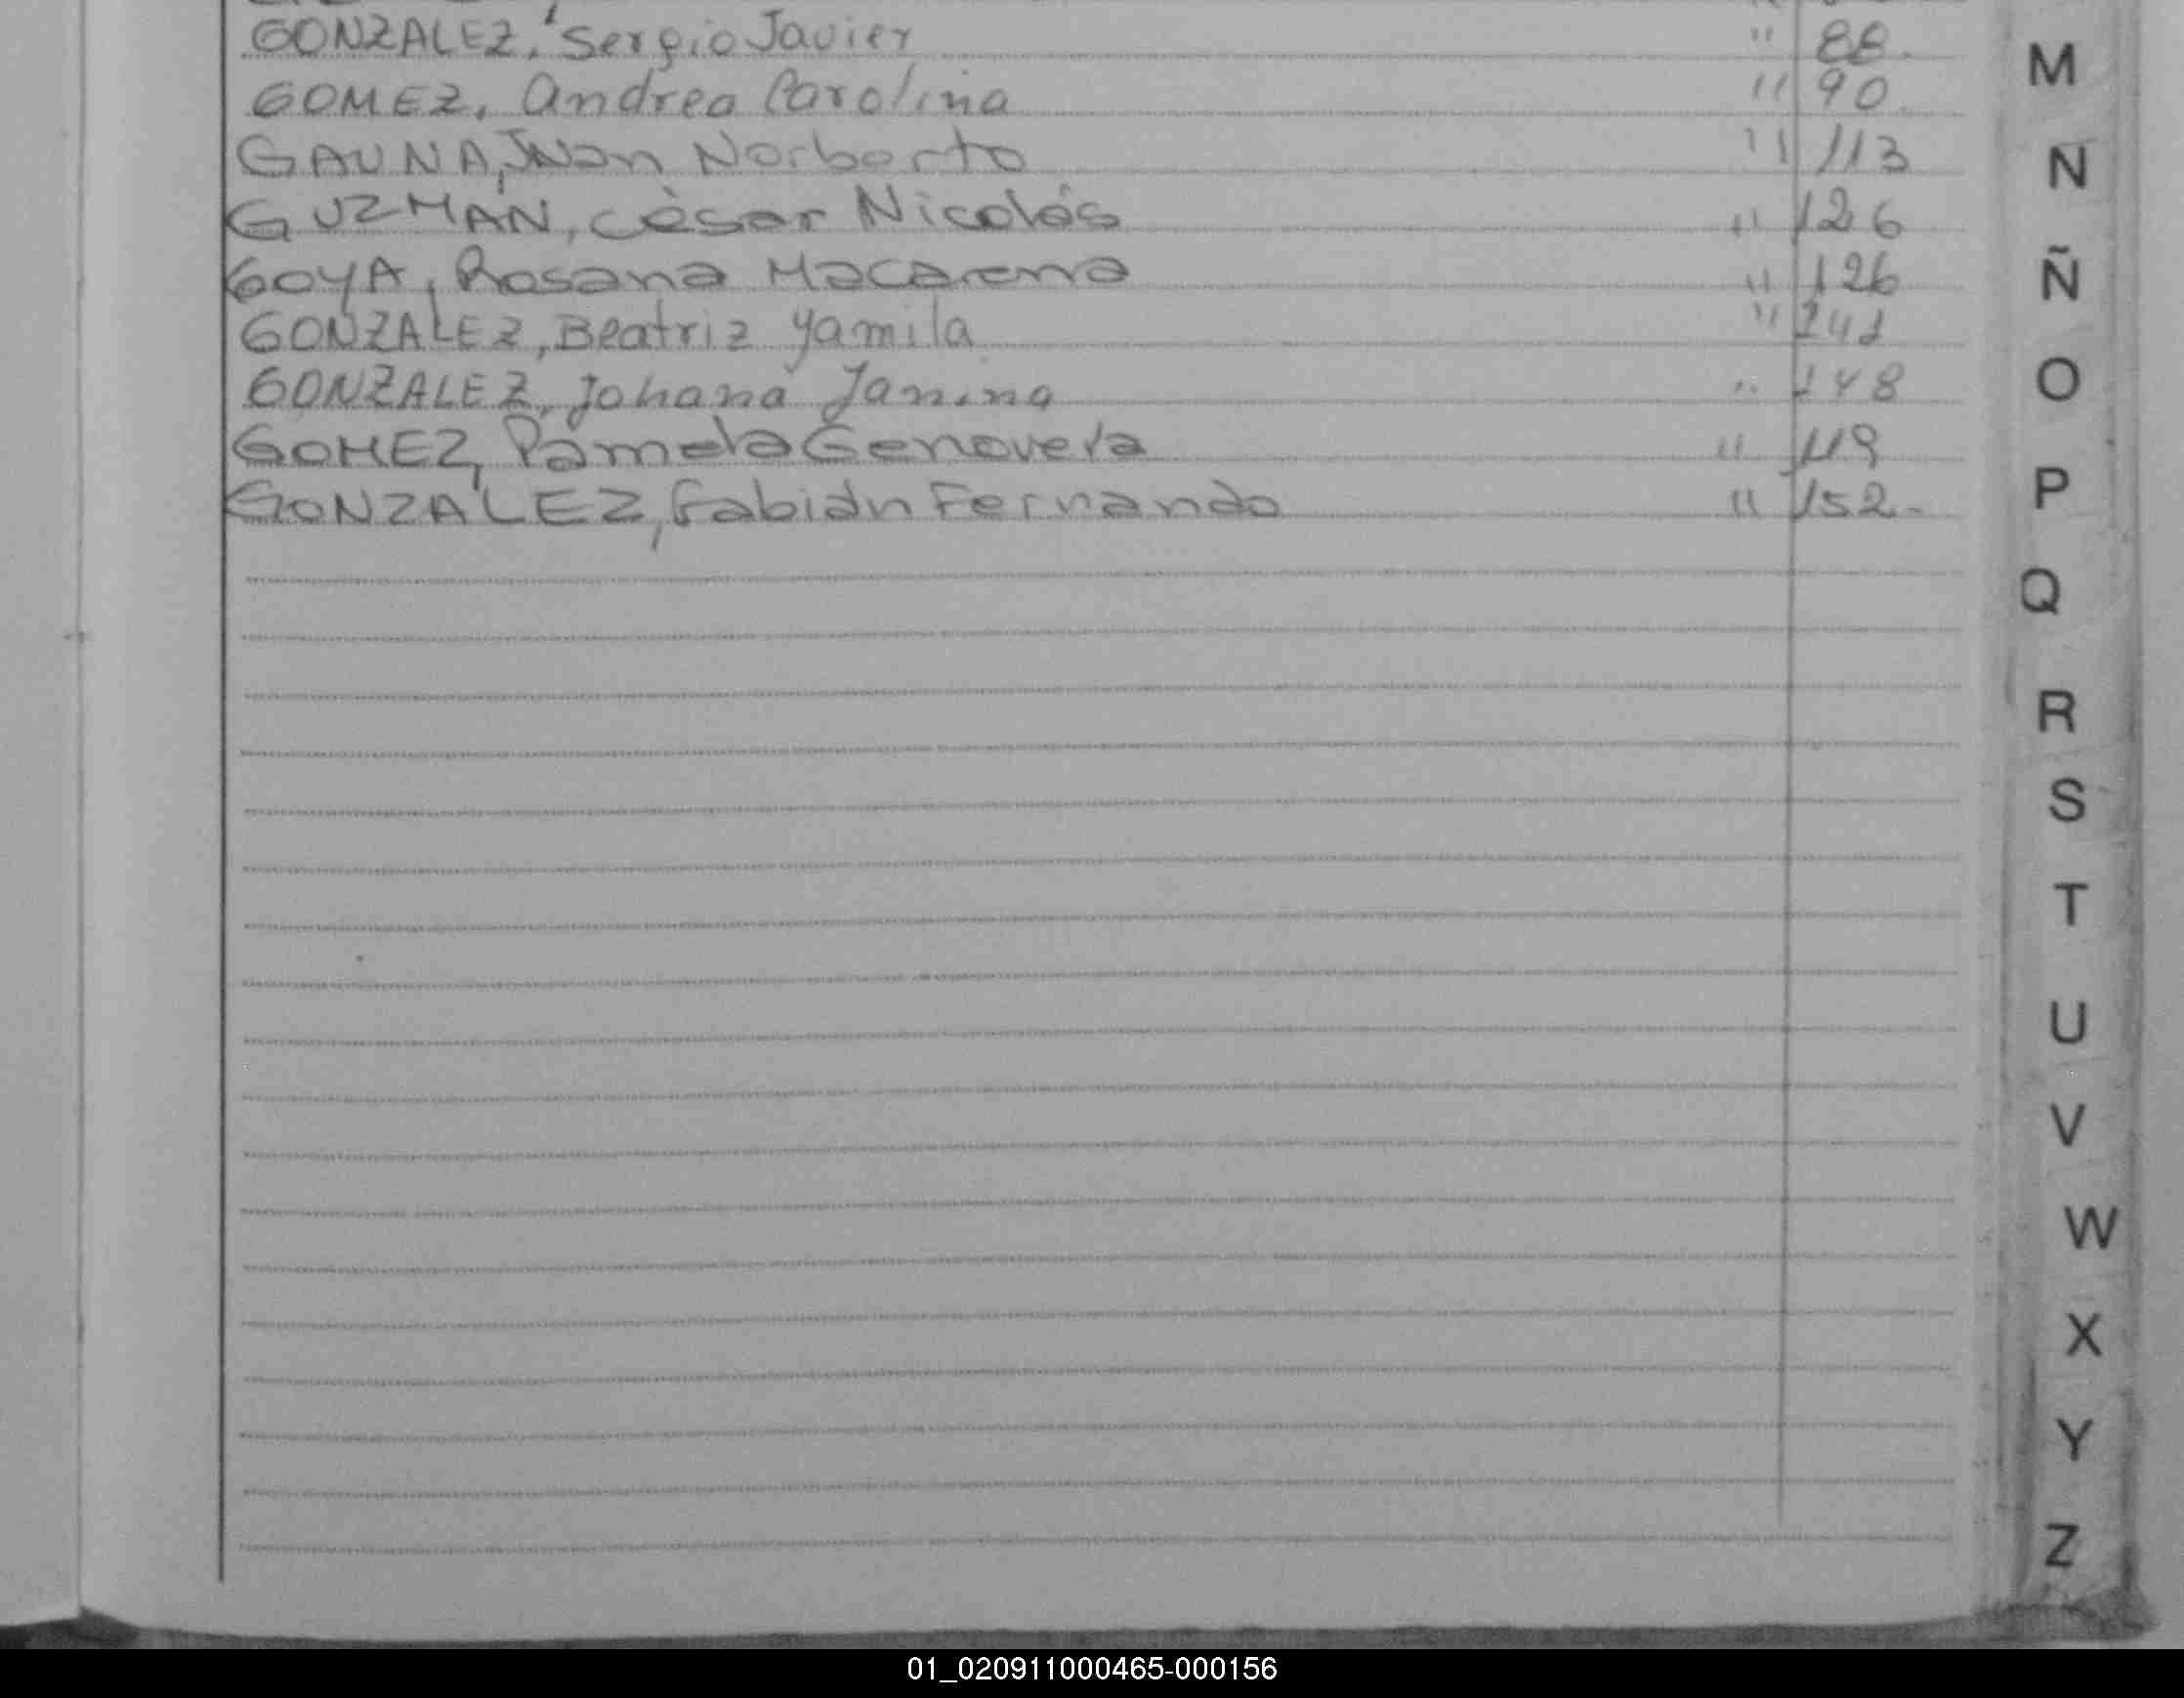 GONZALEZ, Sergio Javier " 88.
GOMEZ, Andrea Carolina " 90.
GAUNA, Juan Norberto " 113
GUZMÁN, Cèsar Nicolás " 126
GOYA, Rosana Macarena " 126
GONZALEZ, Beatriz Yamila " 141
GONZALEZ, Johana Janina " 148
GOMEZ, Pamela Genoveva " 149
GONZALEZ, Fabián Fernando " 152.
M
N
Ñ
O
P
Q
R
S
T
U
V
W
X
Y
Z
01_020911000465-000156